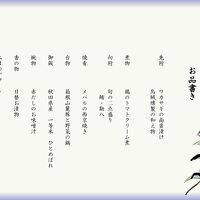 お品書き
先附
ワカサギの南蛮漬け
鳥賊燻製の和え物
煮物
鶏のトマトクリーム煮
向附
旬の二点盛り
鮪・勘八
焼肴
メバルの西京焼き
台物
箱根山麓豚と野菜の鍋
御飯
秋田県産 一等米 ひとめぼれ
椀物
赤だしのお味噌汁
香の物
自慢お漬物